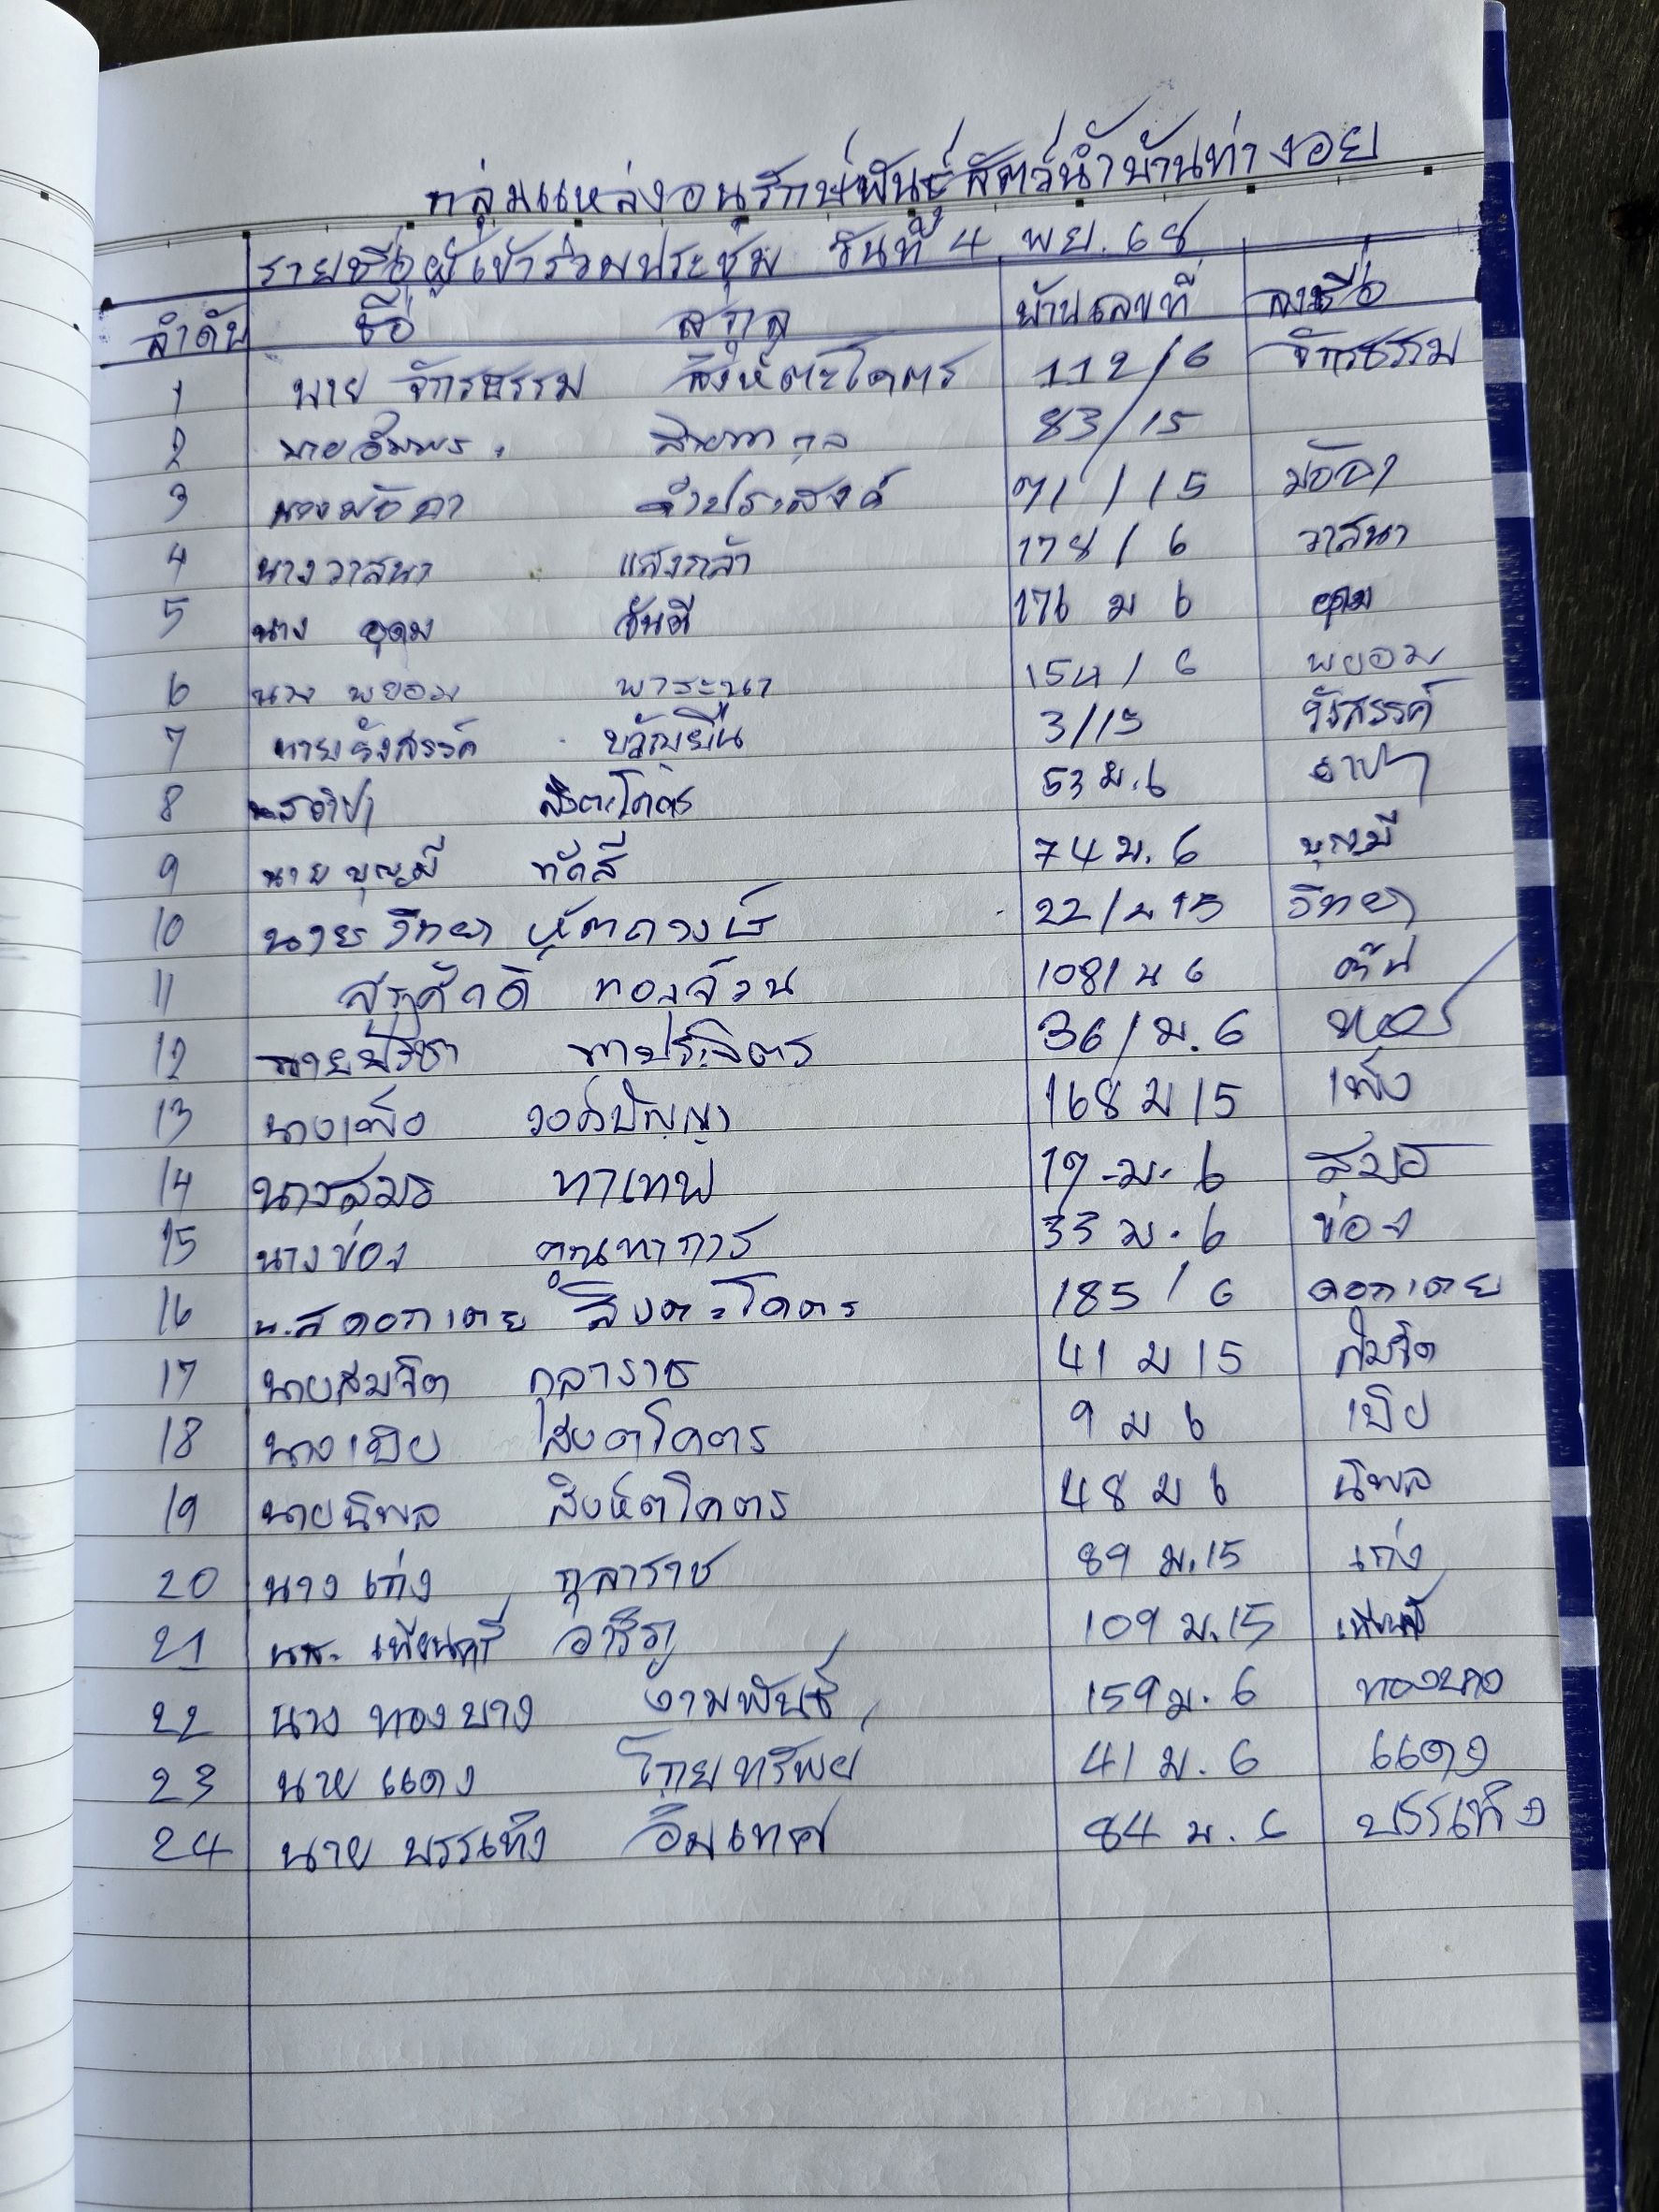 กลุ่มแหล่งอนุรักษ์พันธุ์สัตว์น้ำบ้านท่างอย
รายชื่อผู้เข้าร่วมประชุม วันที่ 4 พย. 68
ลำดับ ชื่อ สกุล บ้านเลขที่ ลงชื่อ
1 นาย จักรธรรม สิงห์ตะโคตร 112/6 จักรธรรม
2 นายอัมพร 83/15
3 คำประสงค์ 71/15
4 นางวาสนา แสงกล้า 178/6 วาสนา
5 นาง อุดม ขันตี 176 ม 6 อุดม
6 นาง พยอม พาระนา 154/6 พยอม
7 นายรังสรรค์ ขวัญยืน 3/15 รังสรรค์
8 53 ม.6
9 นาย บุญมี ทัดสี 74 ม.6 บุญมี
10 นาย วิทยา หัตถวงษ์ 22/ม 15 วิทยา
11 สุรศักดิ์ ทองจีวน 108/ม 6
12 นายปรีชา ทาประจิตร 36/ม.6
13 วงค์ปัญญา 168 ม 15
14 นางสมร ทาเทพ 17-ม.6 สมร
15 นางช่อง คุณทาการ 33 ม.6 ช่อง
16 น.ส ดอกเตย สิงตะโคตร 185/6 ดอกเตย
17 นายสมจิต กุลาราช 41 ม 15 สมจิต
18 นางเบีย สิงตโคตร 9 ม 6 เบีย
19 นายนิพล สิงห์ตโคตร 48 ม 6 นิพล
20 นาง เก่ง กุลาราช 89 ม.15 เก่ง
21 นส. เพียนศรี 109 ม.15
22 นาง ทองบาง งามพันธ์ 159 ม.6 ทองบาง
23 นาย แดง โกยทรัพย์ 41 ม.6 แดง
24 นาย บรรเทิง อิ่มเทศ 84 ม.6 บรรเทิง